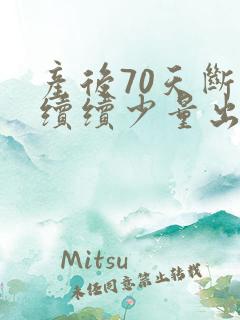 產後70天斷
續續少量出
Mitsu
未經同意禁止轉載